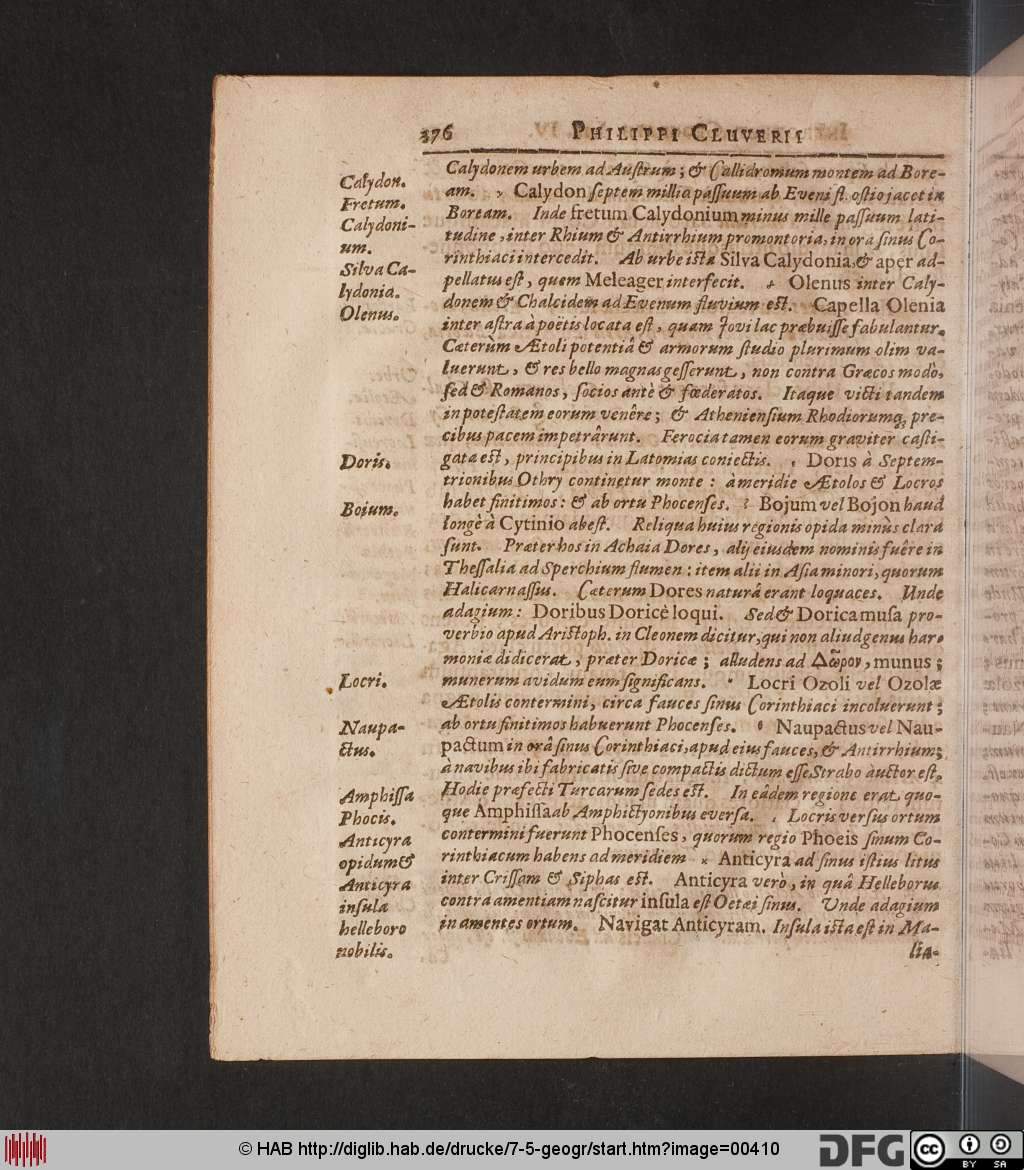 376 PHILIPPI CLUVERII
Calydonem urbem ad Austrum; & Callidromum montem ad Bore-
am. Calydon septem millia passuum ab Eveni fl. ostio jacet in
Boream. Inde fretum Calydonium minus mille passuum lati-
tudine, inter Rhium & Antirrhium promontoria, in ora sinus Co-
rinthiaci intercedit. Ab urbe ista Silva Calydonia, & aper ad-
pellatus est, quem Meleager interfecit. Olenus inter Caly-
donem & Chalcidem ad Evenum fluvium est. Capella Olenia
inter astra à poëtis locata est, quam Jovi lac præbuisse fabulantur.
Cæterùm Ætoli potentiâ & armorum studio plurimum olim va-
luerunt, & res bello magnas gesserunt, non contra Græcos modò,
sed & Romanos, socios antè & fœderatos. Itaque victi tandem
in potestatem eorum venêre; & Atheniensium Rhodiorumq; pre-
cibus pacem impetrârunt. Ferocia tamen eorum graviter casti-
gata est, principibus in Latomias coniectis. Doris à Septem-
trionibus Othry continetur monte: à meridie Ætolos & Locros
habet finitimos: & ab ortu Phocenses. Bojum vel Bojon haud
longè à Cytinio abest. Reliqua huius regionis opida minùs clara
sunt. Præter hos in Achaia Dores, alij eiusdem nominis fuêre in
Thessalia ad Sperchium flumen: item alii in Asia minori, quorum
Halicarnassus. Cæterum Dores naturâ erant loquaces. Unde
adagium: Doribus Doricè loqui. Sed & Dorica musa pro-
verbio apud Aristoph. in Cleonem dicitur, qui non aliud genus har-
moniæ didicerat, præter Doricæ; alludens ad Δῶρον, munus;
munerum avidum eum significans. Locri Ozoli vel Ozolæ
Ætolis contermini, circa fauces sinus Corinthiaci incoluerunt;
ab ortu finitimos habuerunt Phocenses. Naupactus vel Nau-
pactum in orâ sinus Corinthiaci, apud eius fauces, & Antirrhium;
à navibus ibi fabricatis sive compactis dictum esse Strabo àuctor est.
Hodie præfecti Turcarum sedes est. In eâdem regione erat quo-
que Amphissa ab Amphictyonibus eversa. Locris versus ortum
contermini fuerunt Phocenses, quorum regio Phoeis sinum Co-
rinthiacum habens ad meridiem Anticyra ad sinus istius litus
inter Crissam & Siphas est. Anticyra verò, in quâ Helleborus
contra amentiam nascitur insula est Oetæi sinus. Unde adagium
in amentes ortum. Navigat Anticyram. Insula ista est in Ma-
lia-
Calydon.
Fretum.
Calydoni-
um.
Silva Ca-
lydonia.
Olenus.
Doris.
Bojum.
Locri.
Naupa-
ctus.
Amphissa
Phocis.
Anticyra
opidum &
Anticyra
insula
helleboro
nobilis.
© HAB http://diglib.hab.de/drucke/7-5-geogr/start.htm?image=00410
DFG
cc BY SA